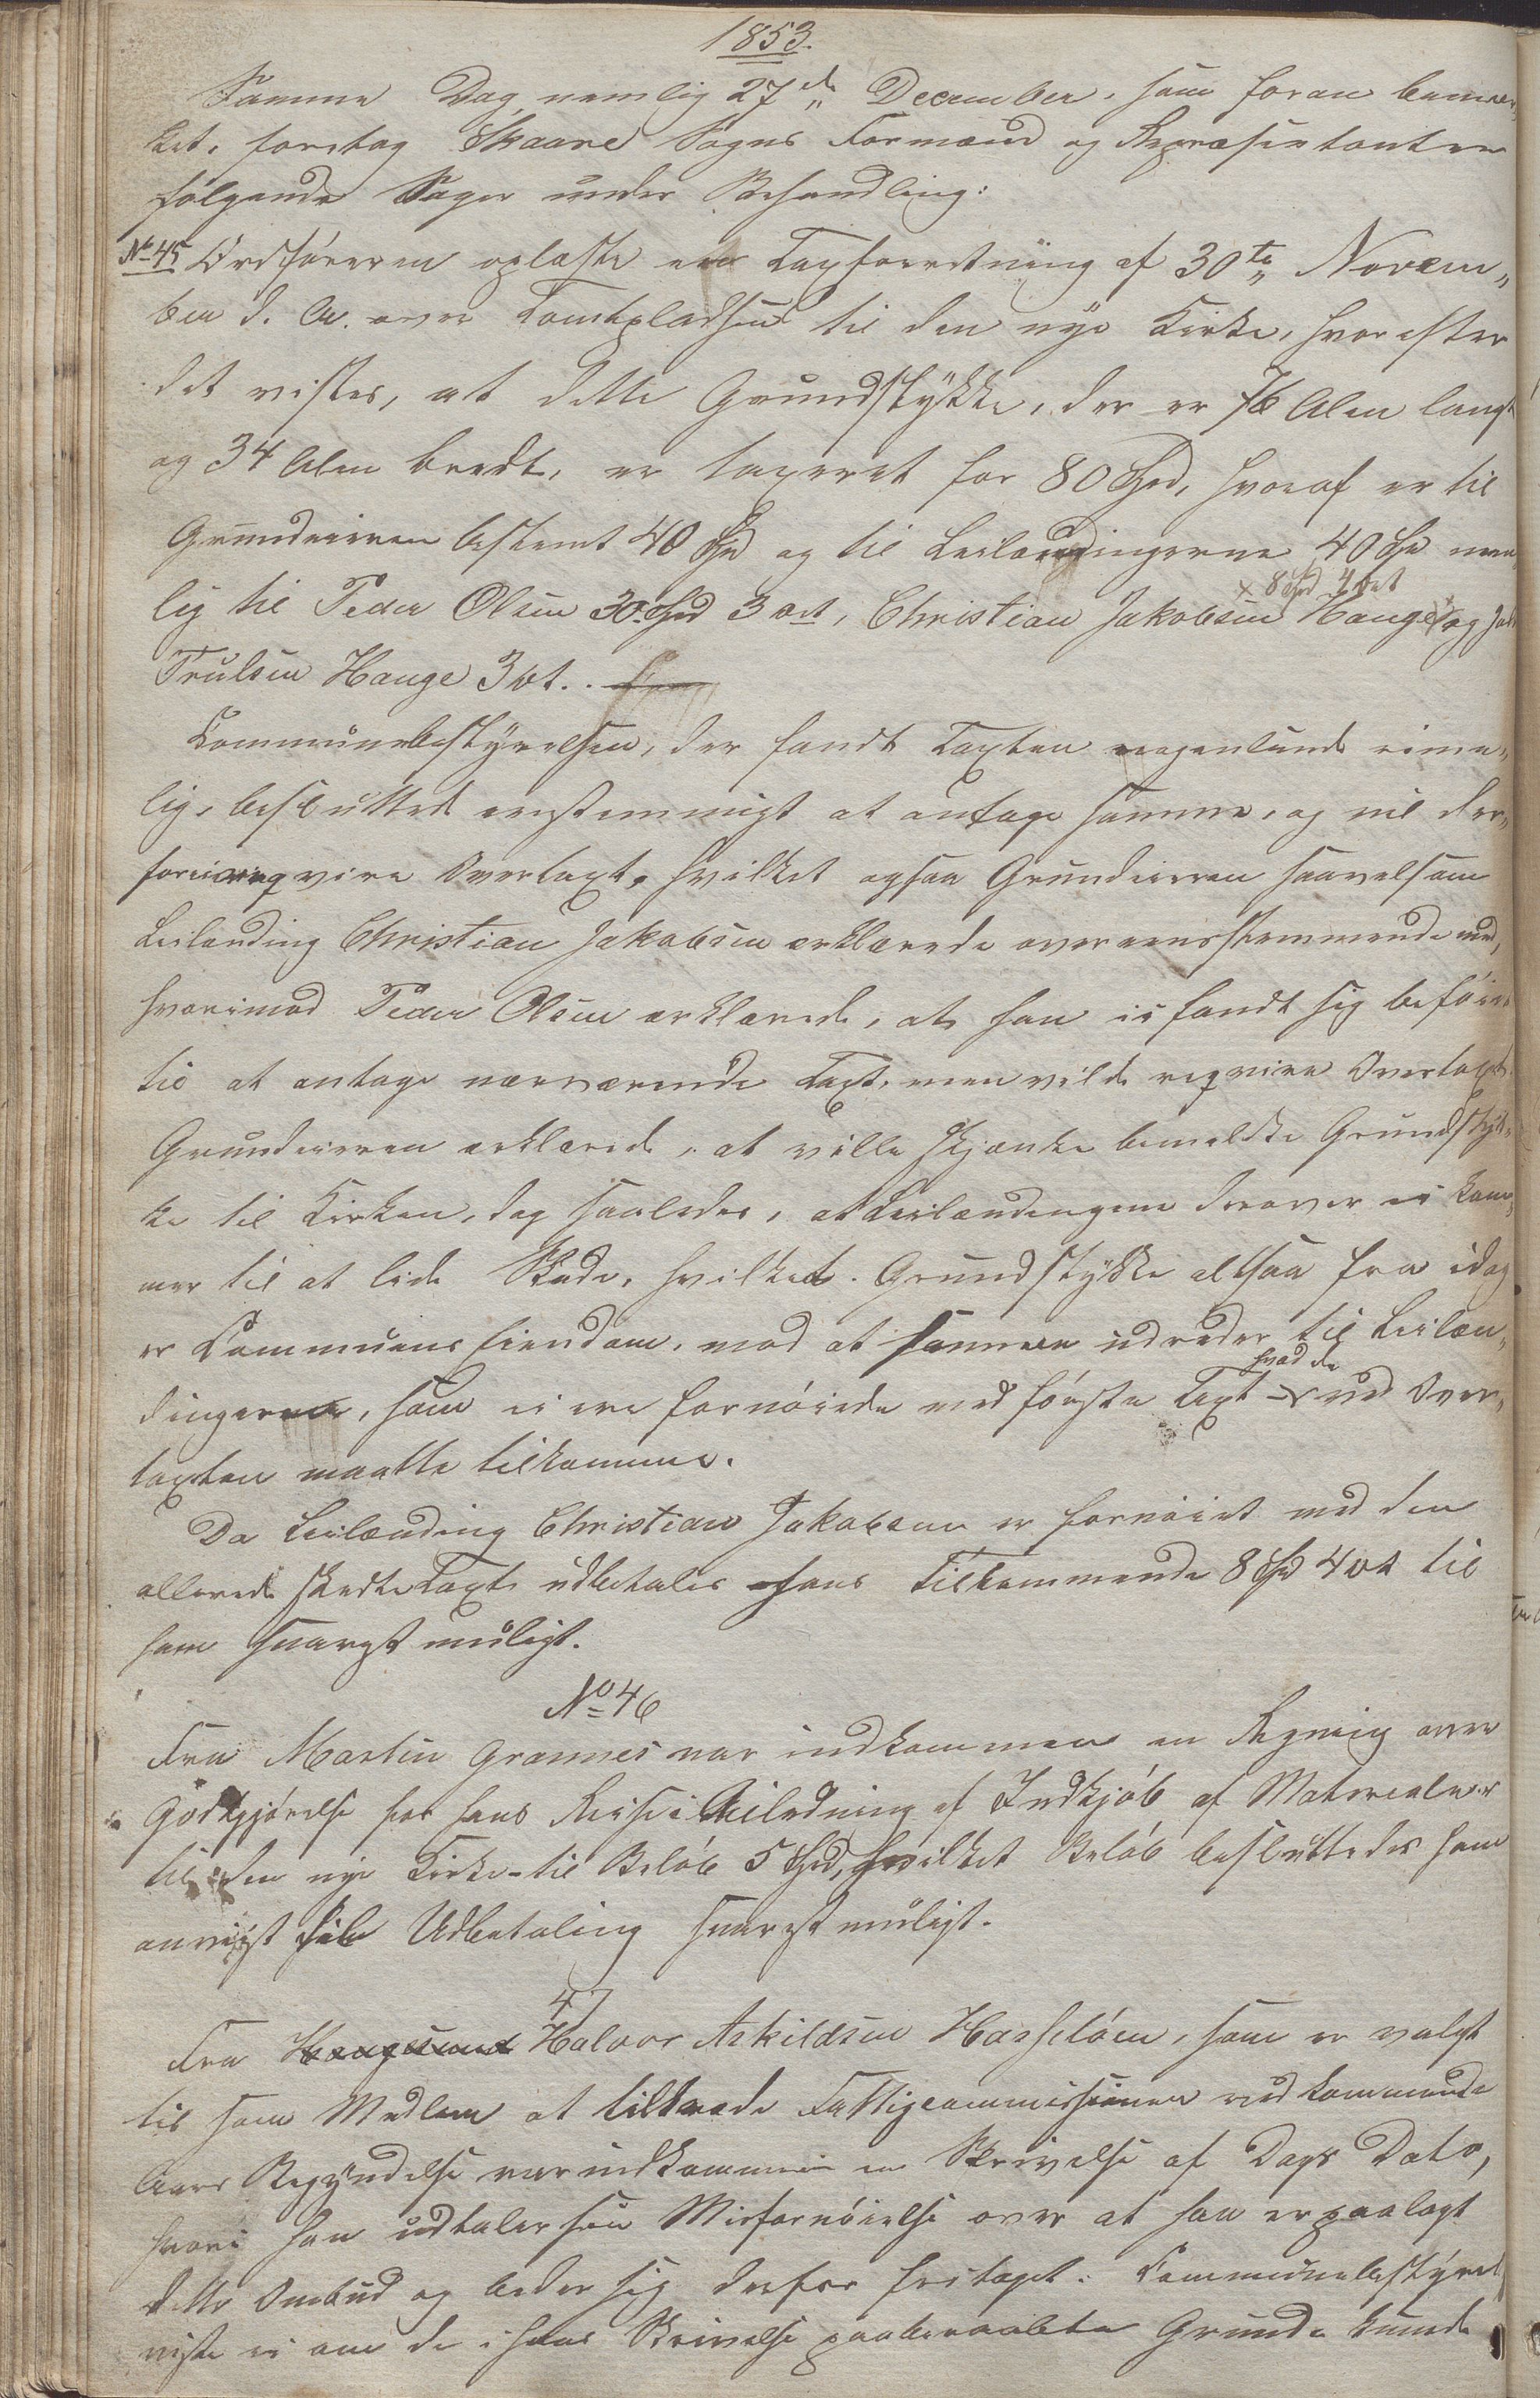 1853.
Samme Dag, nemlig 27de December, som foran bemær,,
ket, foretog Skaare Sogns Formænd og Repræsentanter
følgende Sager under Behandling:
No 45 Ordføreren oplæste en Taxforretning af 30te Novem,,
ber d. A. over Tomtepladsen til den nye Kirke, hvorefter
det vistes, at dette Grundstykke, der er 76 Alen langt
og 34 Alen bredt, er taxeret for 80 Spd, hvoraf er til
Grundeieren bestemt 40 Spd og til Leilændingerne 40 Spd nem,,
lig til Peder Olsen 30 Spd 3 ort, Christian Jakobsen Hauge x 8 Spd 4 ort og
Trulsen Hauge 3 ort.
Communebestyrelsen, der fandt Taxten nogenlunde rime,,
lig, besluttede eenstemmigt at antage samme, og vil der,,
for ei reqvirere Overtaxt, hvilket ogsaa Grundeieren saavelsom
Leilænding Christian Jakobsen erklærede overeensstemmende med,
hvorimod Peder Olsen erklærede, at han ei fandt sig beføiet
til at antage nærværende Taxt, men vilde reqvirere Overtaxt.
Grundeieren erklærede, at ville skjænke bemeldte Grundstyk,,
ke til Kirken, dog saaledes, at Leilændingene derover ei kom,,
mer til at lide Skade, hvilket Grundstykke altsaa fra idag
er Communens Eiendom, mod at samme udreder til Leilæn,,
dingerne, som ei ere fornøiede med første Taxt hvad de ved Over,,
taxten maatte tilkomme.
Da Leilænding Christian Jakobsen er fornøiet med den
allerede skedte Taxt, udbetales hans Tilkommende 8 Spd 4 ort til
ham snarest muligt.
No 46
Fra Martin Grannes var indkommen en Regning over
Godtgjørelse for hans Reise i Anledning af Indkjøb af Materialer
til den nye Kirke til Beløb 5 Spd, hvilket Beløb besluttedes ham
anviist til Udbetaling snarest muligt.
47
Fra Halvor Askildsen Hasseløen, som er valgt
til som Medlem at tiltræde Fattigcommissionen ved kommende
Aars Begyndelse var indkommen en Skrivelse af Dags Dato,
hvori han udtaler sin Misfornøielse over at han er paalagt
dette Ombud og beder sig derfor fritaget. Communebestyrel
viste ei om de i hans Skrivelse paaberaabte Grunde kunde